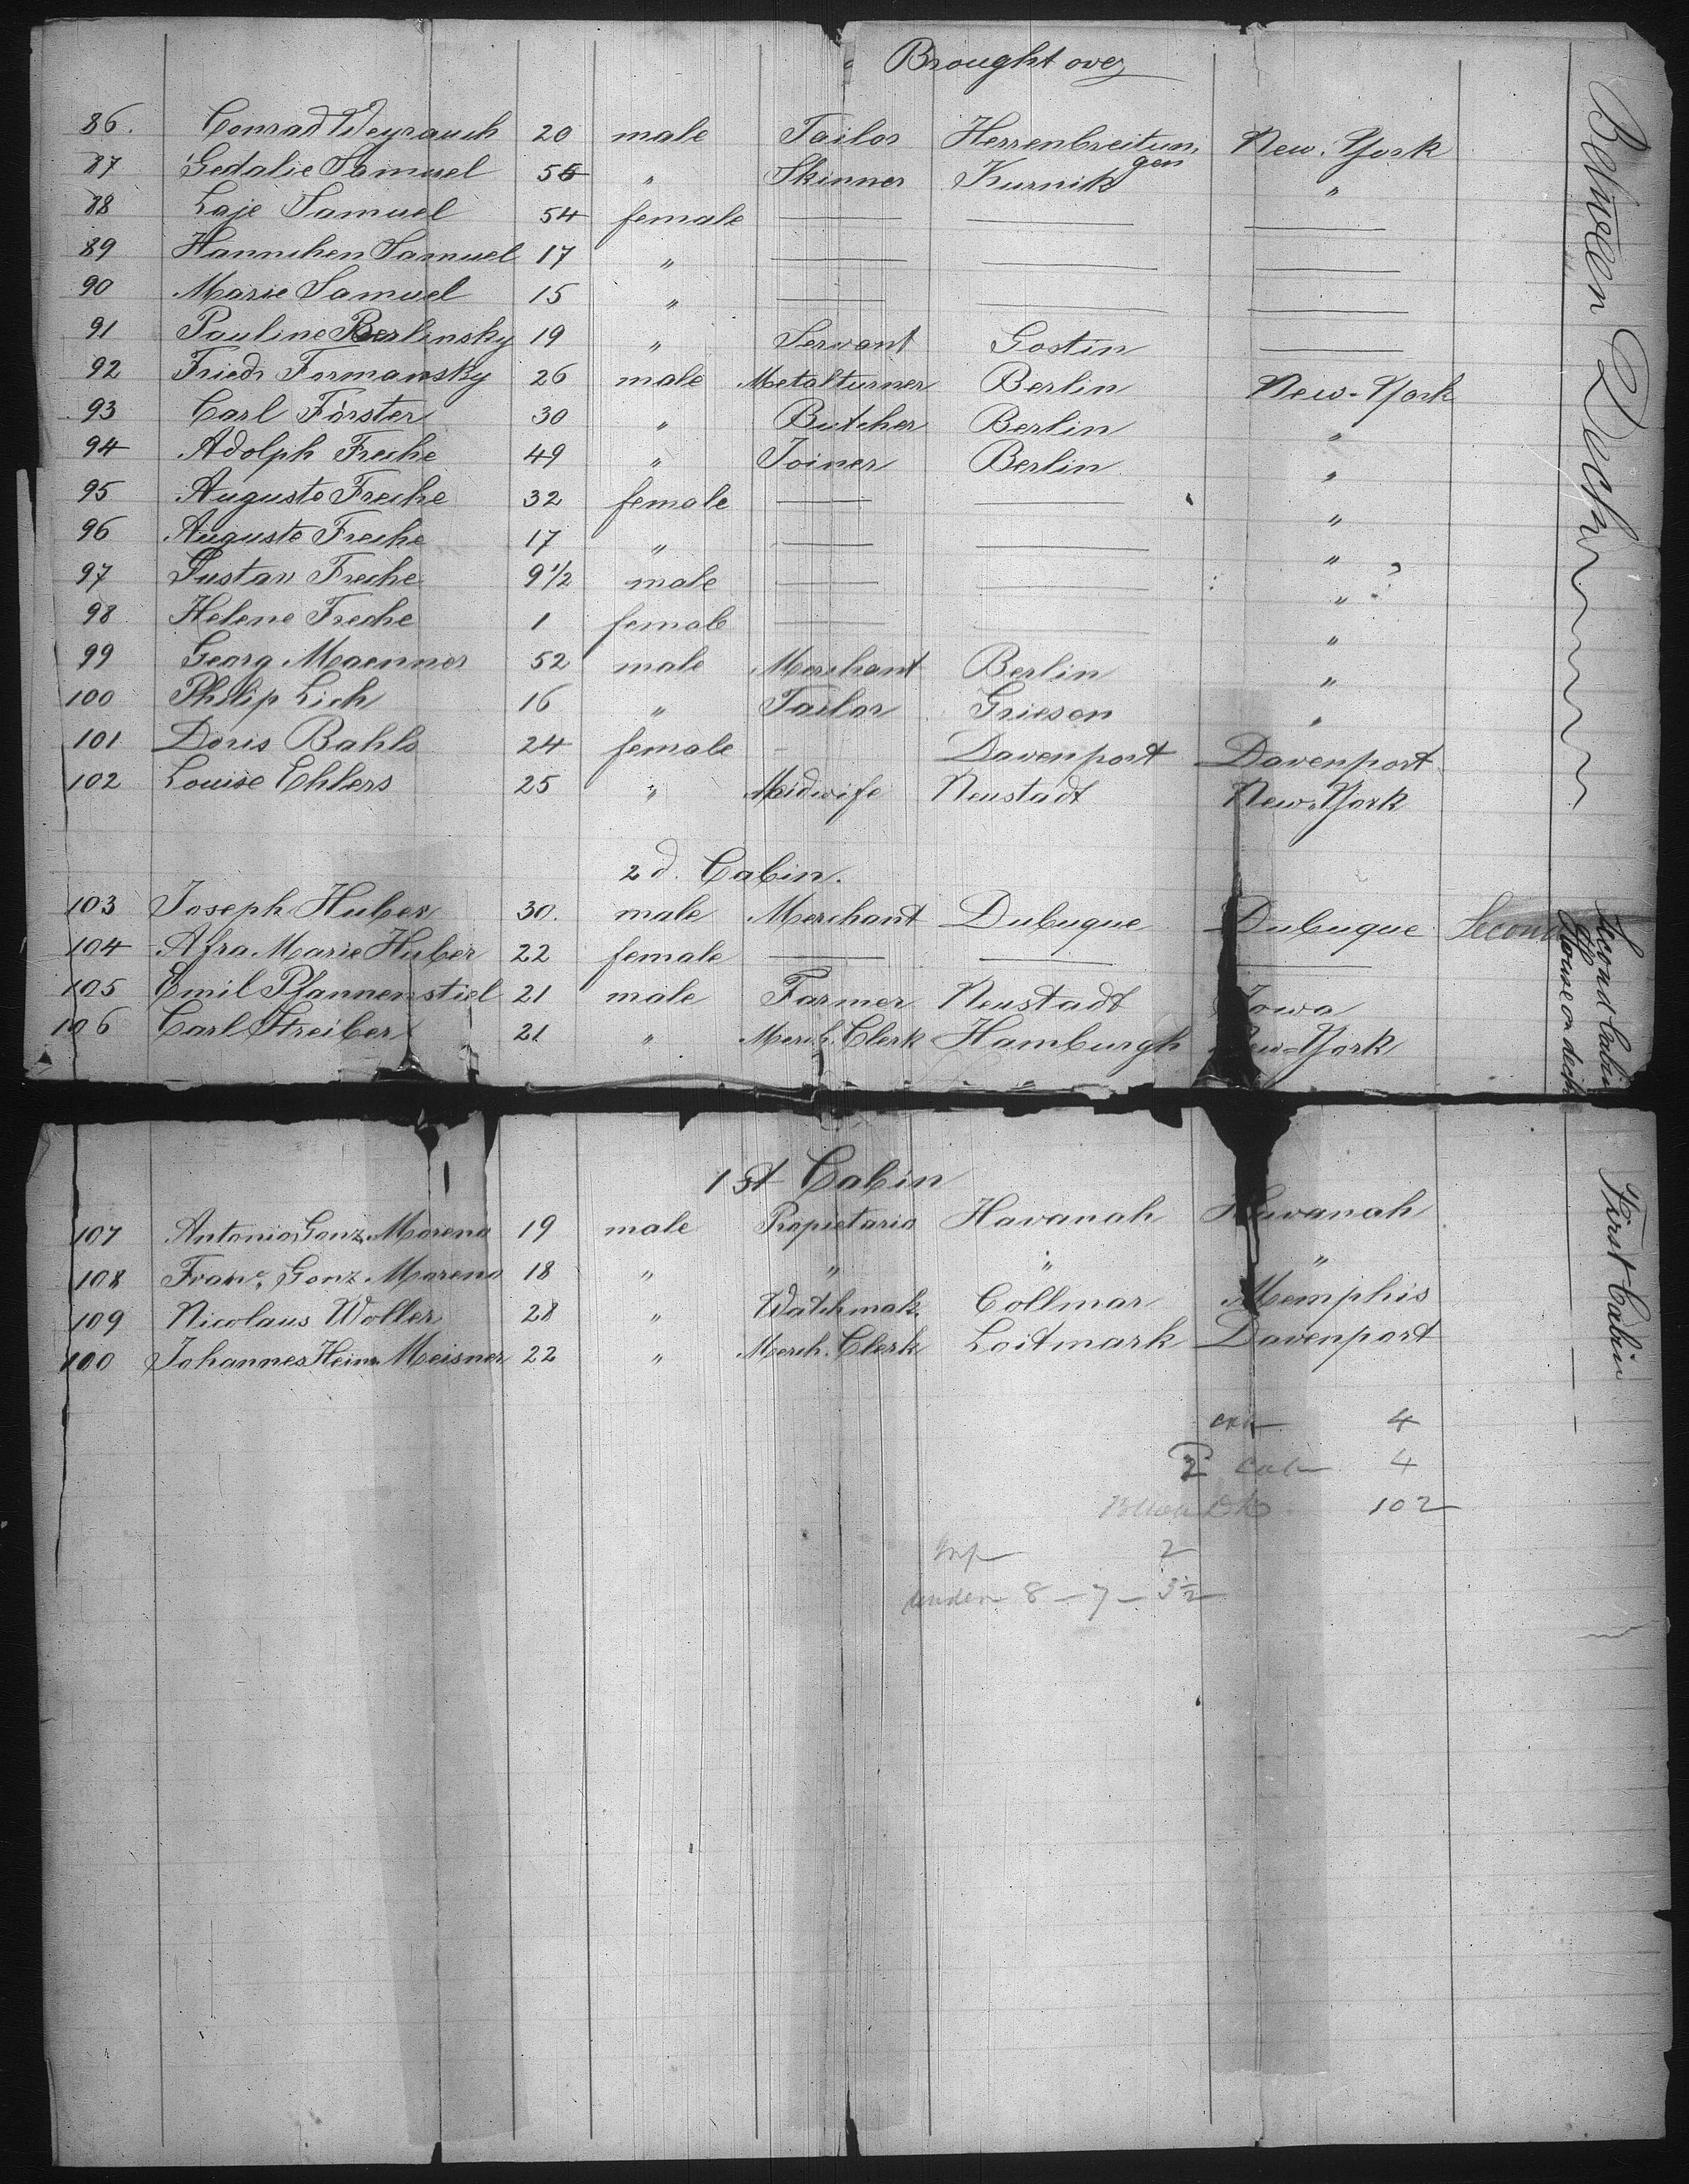 Brought over
86. Conrad Weyrauch 20 male Tailor Herrenbreitungen New-York
87 Gedalie Samuel 55 " Skinner Kurnik "
88 Laje Samuel 54 female — — —
89 Hannchen Samuel 17 " — — —
90 Marie Samuel 15 " — — —
91 Pauline Berlinsky 19 " Servant Gostin —
92 Friedr Formansky 26 male Metalturner Berlin New-York
93 Carl Förster 30 " Butcher Berlin "
94 Adolph Freche 49 " Joiner Berlin "
95 Auguste Freche 32 female — — "
96 Auguste Freche 17 " — — "
97 Gustav Freche 9 1/2 male — — "
98 Helene Freche 1 female — — "
99 Georg Maenner 52 male Merchant Berlin "
100 Philip Lich 16 " Tailor Grieson "
101 Doris Bahls 24 female - Davenport Davenport
102 Louise Ehlers 25 " Midwife Neustadt New-York
Between Deck
2d. Cabin.
103 Joseph Huber 30. male Merchant Dubuque Dubuque Second
104 Afra Marie Huber 22 female — — —
105 Emil Pfannenstiel 21 male Farmer Neustadt Iowa
106 Carl Streiber 21 " Merch. Clerk Hamburgh New-York
Second Cabin
House on deck
1st Cabin
107 Antonio Gonz. Moreno 19 male Propietario Havanah Havanah
108 Franc. Gonz. Moreno 18 " " " "
109 Nicolaus Woller 28 " Watchmak. Collmar Memphis
100 Johannes Heinr. Meisner 22 " Merch. Clerk Loitmark Davenport
First Cabin
4
2 cab 4
102
Inf 2
under 8 - 7 - 3 1/2